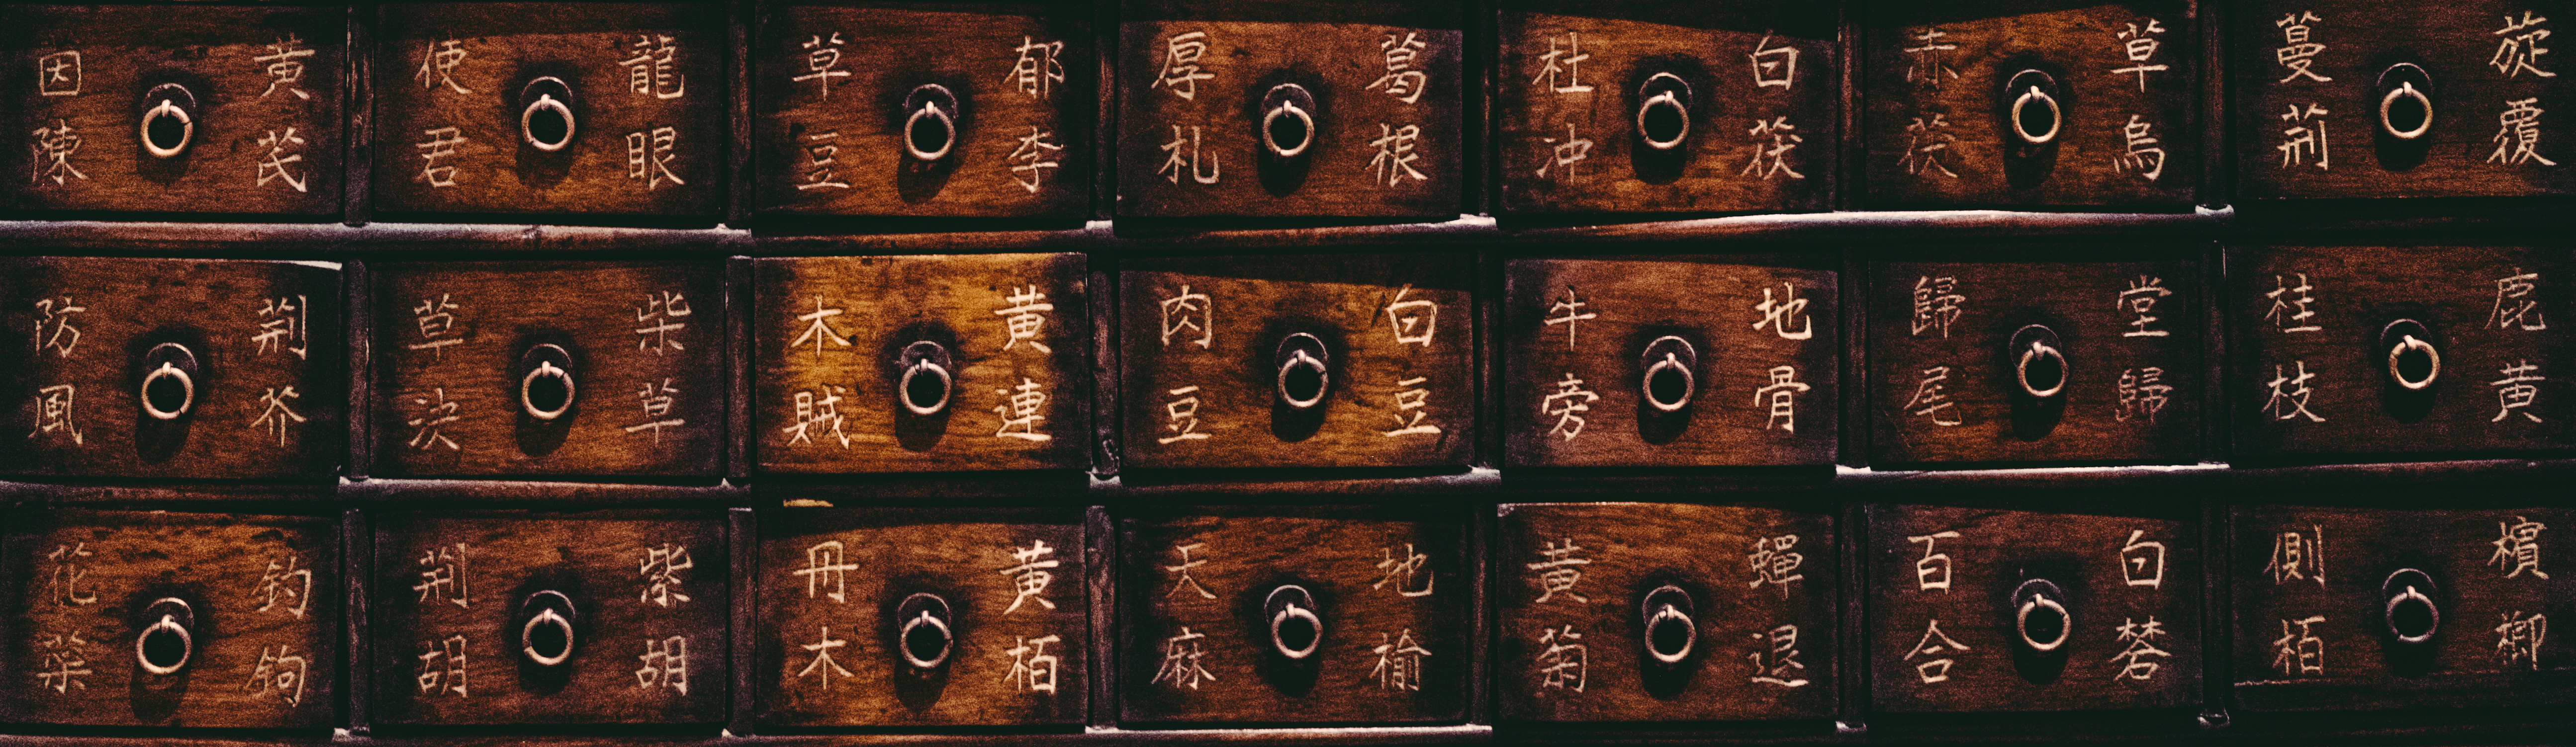 因陳
黄芪
使君
龍眼
草豆
郁李
厚札
葛根
杜冲
白茯
赤茯
草烏
蔓荊
旋覆
防風
荊芥
草决
柴草
木賊
黄連
肉豆
白豆
牛旁
地骨
歸尾
堂歸
桂枝
鹿黄
花
釣鉤
荊胡
紫胡
丹木
黄栢
天麻
地榆
黄菊
蟬退
百合
白
側栢
檳榔